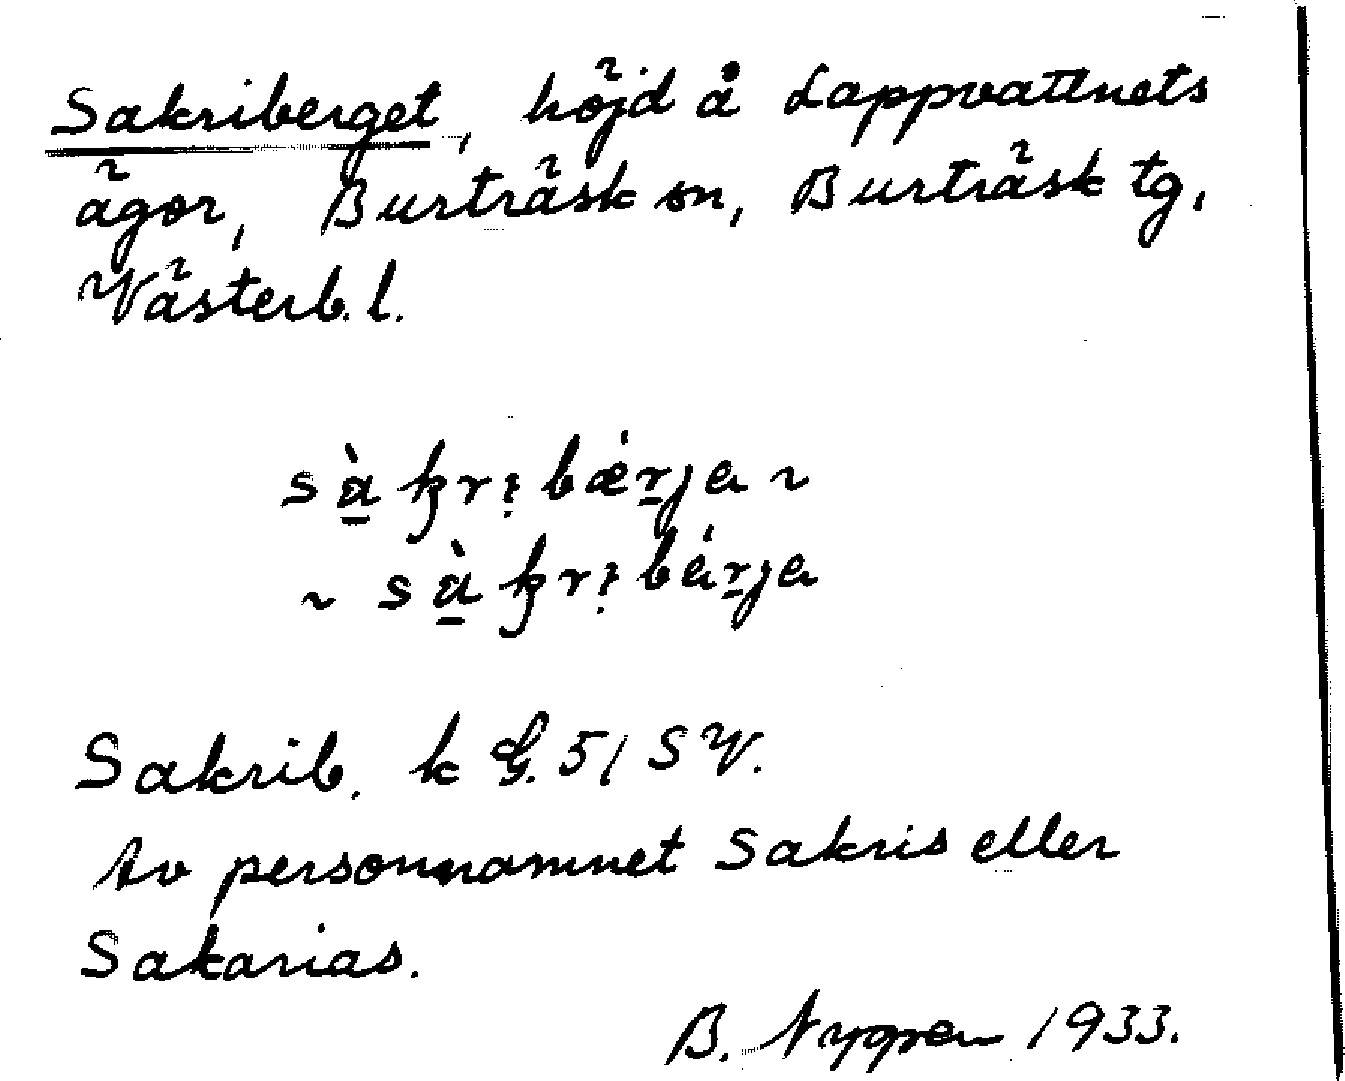 Sakriberget, höjd å Lappvattnets
ägor, Burträsk sn, Burträsk tg,
Västerb. l.
sàkribǽrja ~
~ sàkribárja
Sakrib. k G. 51 SV.
Av personnamnet Sakris eller
Sakarias.
B. Nygren 1933.